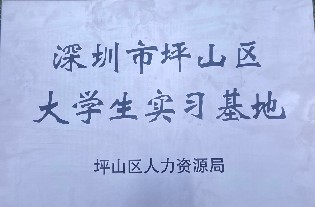 深圳市坪山区
大学生实习基地
坪山区人力资源局